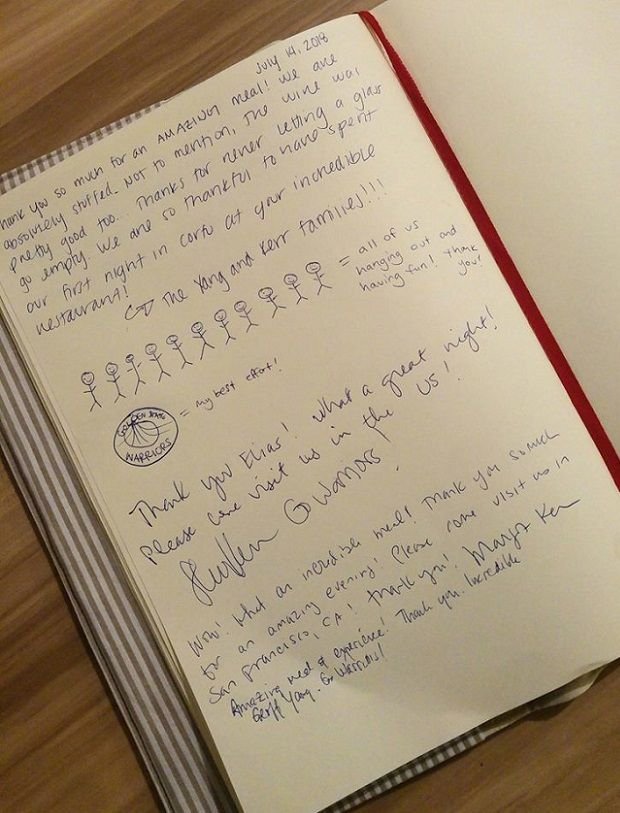 July 14, 2018
Thank you so much for an AMAZING meal! We are
absolutely stuffed. Not to mention, the wine was
pretty good too... Thanks for never letting a glass
go empty. We are so thankful to have spent
our first night in Corfu at your incredible
restaurant!
The Yang and Kerr families!!!
= all of us
hanging out and
having fun! Thank
you!
GOLDEN STATE
WARRIORS
= my best effort!
Thank you Elias! What a great night!
Please come visit us in the US!
Go Warriors!
Wow! What an incredible meal! Thank you so much
for an amazing evening! Please come visit us in
San Francisco, CA! Thank you! Margot Kerr
Amazing meal & experience! Thank you. Incredible
Geoff Yang. Go Warriors!